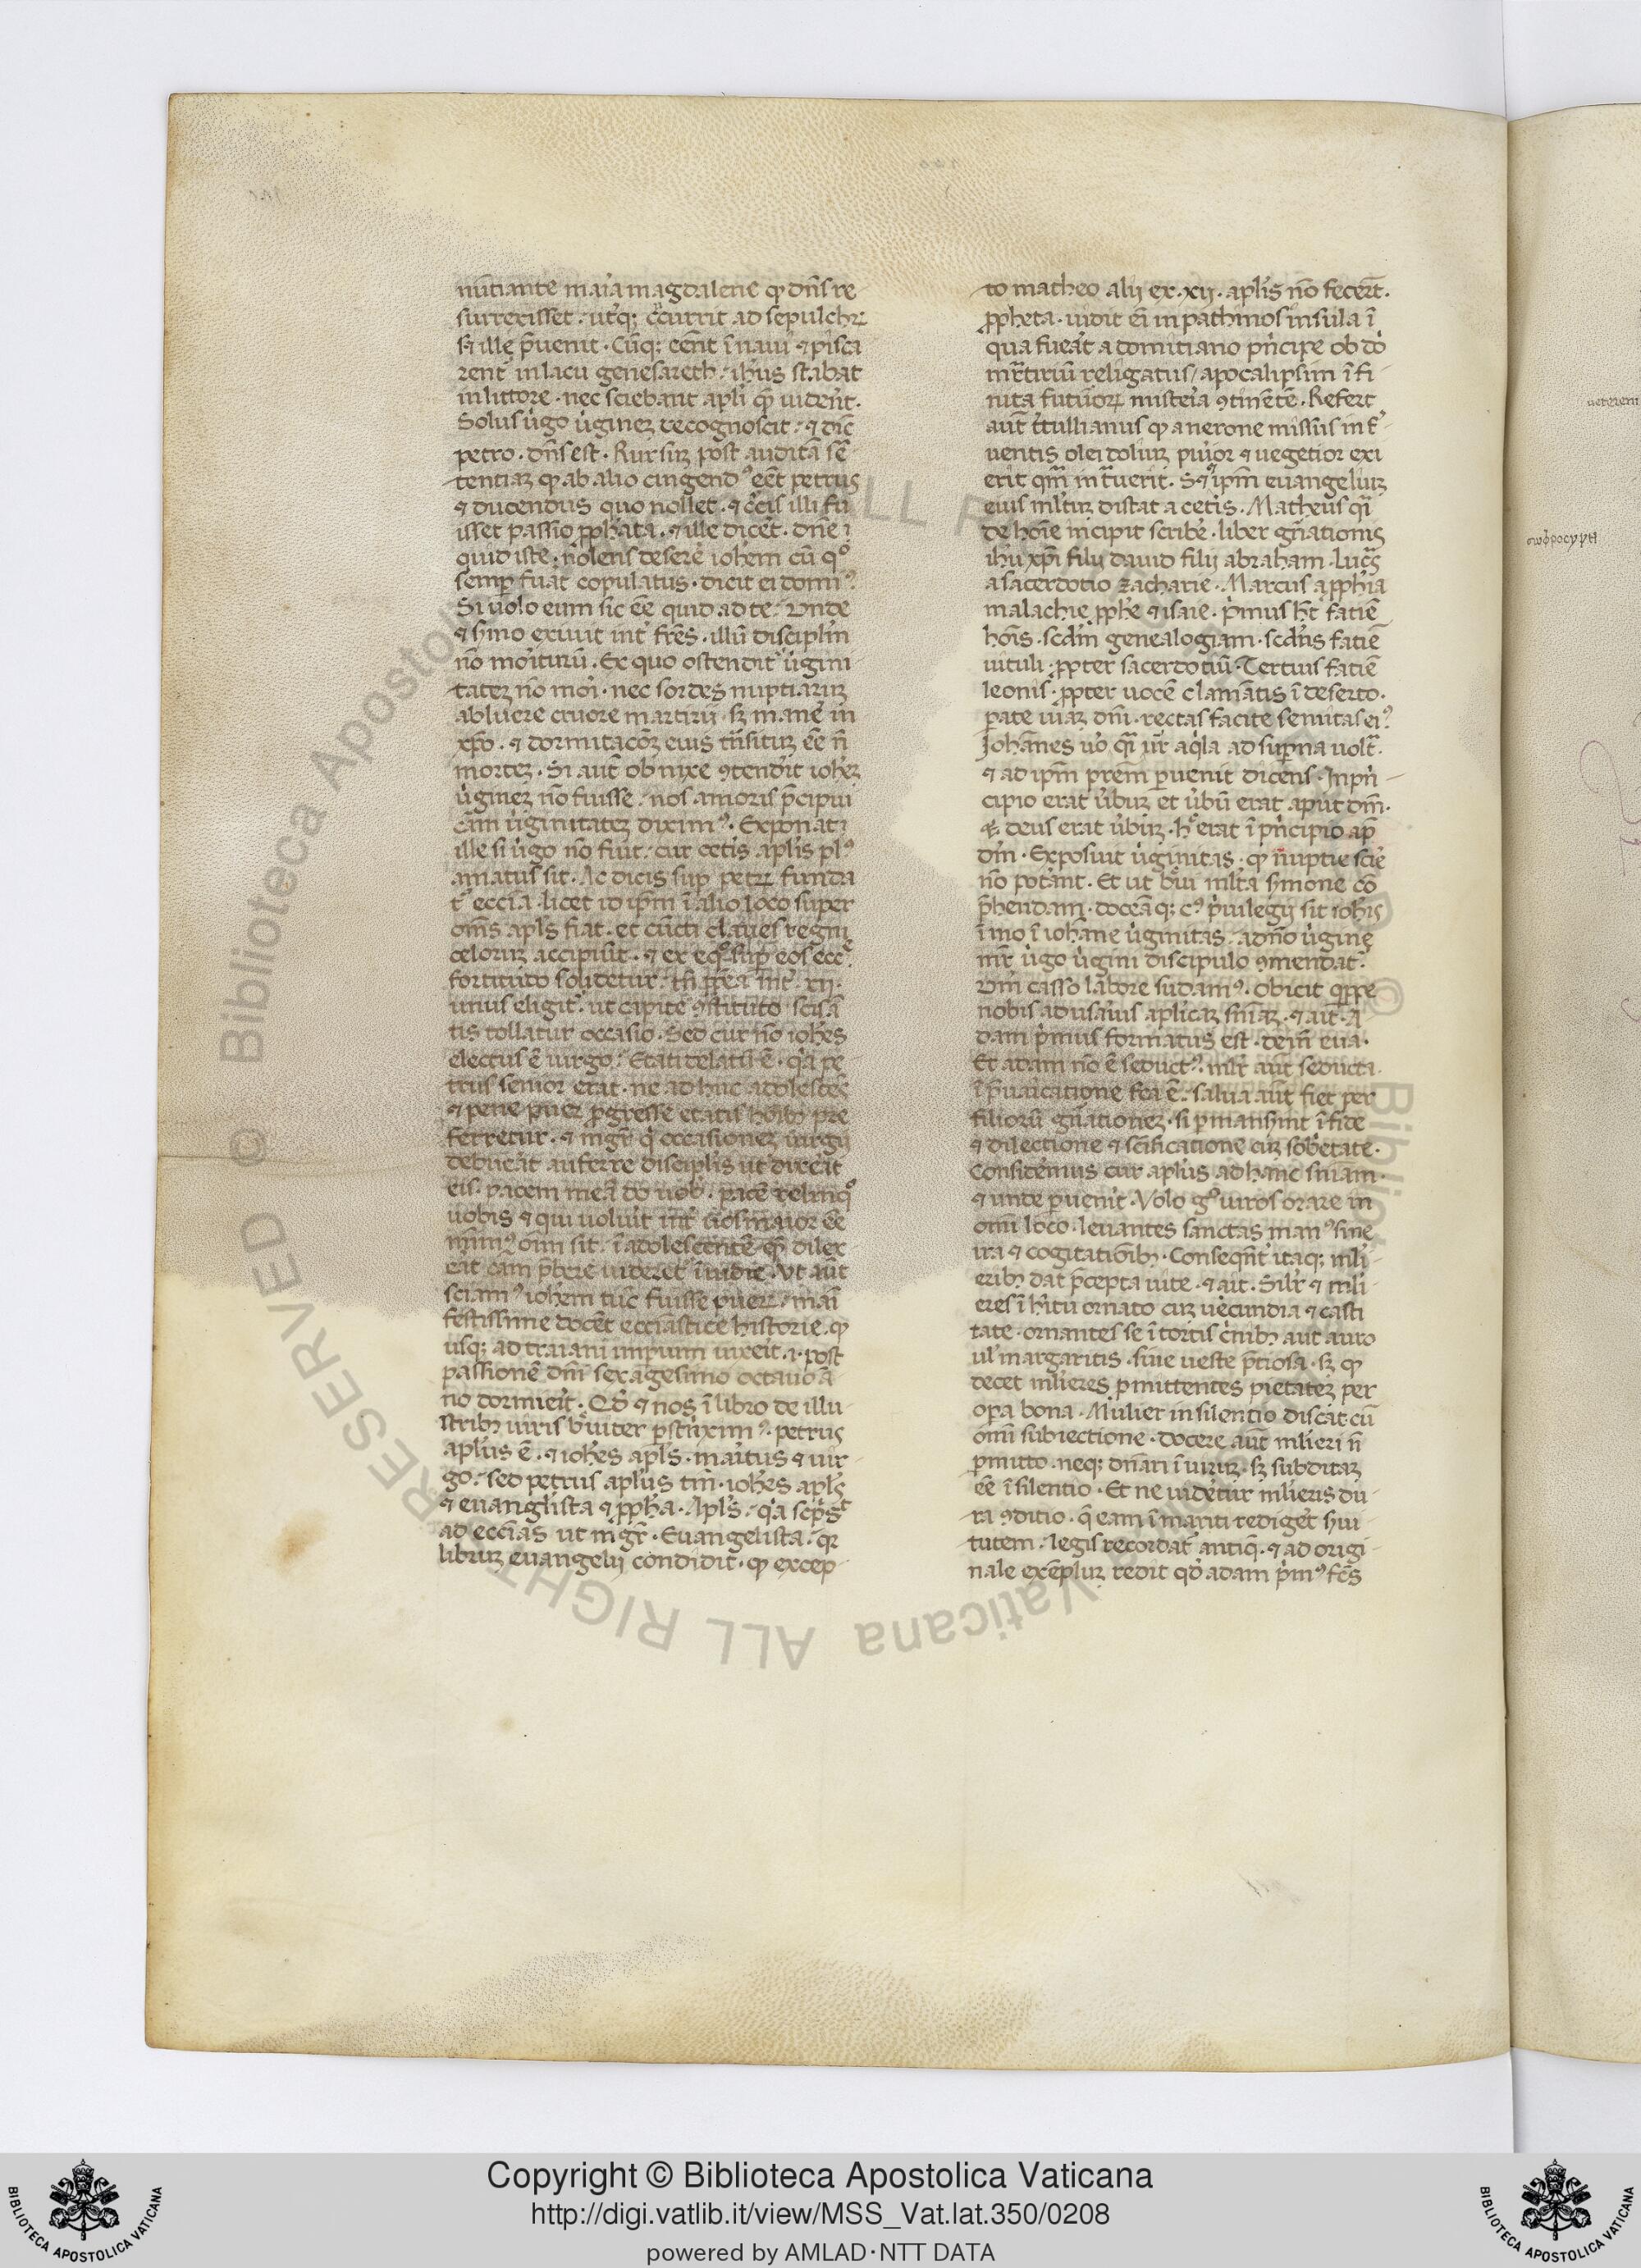 nūtiante maia magdalene ꝙ dn̄s re
surrexisset. utq; c̄currit ad sepulchꝝ
sꝫ ille p̄uenit. Cūq; eēnt ī naui ⁊ pisca
rent᷑ in lacu genesareth. ihūs stabat
in littore. nec sciebant apl̄i quē uidēnt.
Solus u̇go u̇ginez recognoscit. ⁊ dic̄
petro. dn̄s est. Rursuz post auditā sē
tentiaz ꝙ ab alio cingendꝰ eēt petrus
⁊ ducendus quo nollet. ⁊ c̄cis illi fu
isset passio ꝓph̄ata. ⁊ ille dicēt. dn̄e
quid iste. nolens deserē ioh̄em cū qͦ
semꝑ fuāt copulatus. dicit ei domīꝰ.
Si uolo eum sic eē quid ad te. Unde
⁊ smo exiuit int̄ fr̄es. illū disciplm̄
nō moiturū. Ex quo ostendit᷑ u̇gini
tatez nō moi. nec sordes nuptiaruz
abluere cruore martirii. sꝫ manē in
xp̄o. ⁊ dormitacōz eius tn̄situz eē n̄
mortez. Si aut̄ obnixe ꝯtendit ioh̄ez
u̇ginez nō fuisse. nos amoris p̄cipui
cām u̇ginitatez diximꝰ. Exponat
ille si u̇go nō fuit. cur cetis apl̄is plꝰ
amatus sit. Ac dicis suꝑ petrꝝ funda
t᷑ eccl̄ia. licet id ip̄m ī alio loco super
om̄s apl̄s fiat. et cūcti claues regni
celoruz accipiūt. ⁊ ex eqͦ suꝑ eos ecc̄e
fortitudo solidetur. tn̄ ꝓꝑea int̄ .xii.
unus eligit᷑. ut capite ꝯstituto scisma
tis tollatur occasio. Sed cur nō ioh̄es
electus ē uirgo. Etati delatū ē. qa pe
trus senior erat. ne adhuc adolescēs
⁊ pene puer ꝓgresse etatis hōib᷒ pre
ferretur. ⁊ mgr̄ q̇ occasionez iurgij
debueāt auferre discipl̄is ut dixeāt
eis. pacem meā do uob᷒. pacē relinqͦ
uobis ⁊ qui uoluit int̄ uos maior eē
minīꝰ oīm sit. ī adolescentē quē dilex
eāt cām p̄bere uideret᷑ īuidie. Ut aut̄
sciamꝰ ioh̄em tūc fuisse pueꝝ. mani
festissime docēt eccl̄iastice historie. ꝙ
usq; ad traiani imꝑium uixeit. ⁊ post
passionē dn̄i sexagesimo octauo ā
no dormieit. Qd̄ ⁊ nos ī libro de illu
strib᷒ uiris b̄uiter ꝑstrīximꝰ. petrus
apl̄us ē. ⁊ ioh̄es apl̄s. maitus ⁊ uir
go. sed petrus apl̄us tm̄. ioh̄es apl̄s
⁊ euangl̄ista ⁊ ꝓph̄a. Apl̄s. qa scp̄sit
ad eccl̄ias ut mgr̄. Euangelista. qꝛ
libruz euangelij condidit. ꝙ excep
to matheo alij ex .xij. apl̄is nō fecēt.
ꝓpheta. uidit eī in pathmos insula ī
qua fueāt a domitiano ṗncipe ob dō
mr̄tiriū religatus, apocalipsim īfi
nita futuroꝝ misteia ꝯtinētē. Refert
aut̄ t̄tullianus ꝙ a nerone missus in f̄
uentis olei doliuz puior ⁊ uegetior exi
erit qm̄ intuerit. Sꝫ ⁊ ip̄m euangeliuz
eius ml̄tuz distat a cetis. Matheus qi
de hoīe incipit scribē. liber gn̄ationis
ih̄u xp̄i filij dauid filij abraham. Lucas
a sacerdotio zacharie. Marcus a ꝓph̄ia
malachie ꝓph̄e ⁊ isaie. ṗmus h̄t fatiē
hoīs. scdm̄ genealogiam. scdn̄s fatiē
uituli. ꝓpter sacerdotiū. Tertius fatiē
leonis. ꝓpter uocē clamātis ī deserto.
ꝑate uiaz dn̄i. rectas facite semitas eiꝰ.
Johānes uo qi ur̄ aqla ad suꝑna uolt̄.
⁊ ad ip̄m pr̄em ꝑuenit dicens. In pn̄
cipio erat u̇buz et u̇bū erat aput dm̄.
⁊ deus erat u̇buz. h̄ erat ī ṗncipio ap̄
dm̄. Exposuit u̇ginitas. ꝙ nuptie scīe
nō potānt. Et ut b̄ui ml̄ta smone cō
p̄hendam. doceāq; cꝰ ṗuilegij sit ioh̄is
īmo ī ioh̄ane u̇ginitas. a dn̄o u̇gine
mr̄ u̇go u̇gini discipulo ꝯmendat᷑.
Um̄ casso labore sudamꝰ. obicit quippe
nobis aduersāius apl̄icaz sn̄iaz. ⁊ ait. A
dam ṗmus formatus est. dein̄ eua.
Et adam nō ē seductꝰ. ml̄r aut̄ seducta
ī p̄uaricatione fca ē. salua aut̄ fiet per
filiorū gn̄ationez. si ꝑmansint ī fide
⁊ dilectione ⁊ scīficatione cuz sobrietate.
Considēmus cur apl̄us ad hanc sn̄iam.
⁊ unde ꝑuenit. Volo gͦ uiros orare in
omī loco. leuantes sanctas manꝰ sine
ira ⁊ cogitatiōib᷒. Conseqn̄t itaq; mli
erib᷒ dat p̄cepta uite. ⁊ ait. Silr̄ ⁊ mli
eres ī h̄itu ornato cuz uecundia ⁊ casti
tate. ornantes se ī tortis c̄nib᷒ aut auro
ul̄ margaritis. siue ueste p̄tiosa. sꝫ ꝙ
decet mlieres ꝓmittentes pietatez per
oꝑa bona. Mulier in silentio discāt cū
omī subiectione. docere aut̄ mlieri n̄
ꝑmitto. neq; dn̄ari ī uiruz. sꝫ subditaz
eē ī silentio. Et ne uidētur mlieris du
ra ꝯditio. q̄ eam ī mariti redigēt sui
tutem. legis recordat᷑ antiq̄. ⁊ ad origi
nale exēpluz redit qd̄ adam ṗmꝰ fc̄s
Copyright © Biblioteca Apostolica Vaticana
http://digi.vatlib.it/view/MSS_Vat.lat.350/0208
powered by AMLAD·NTT DATA